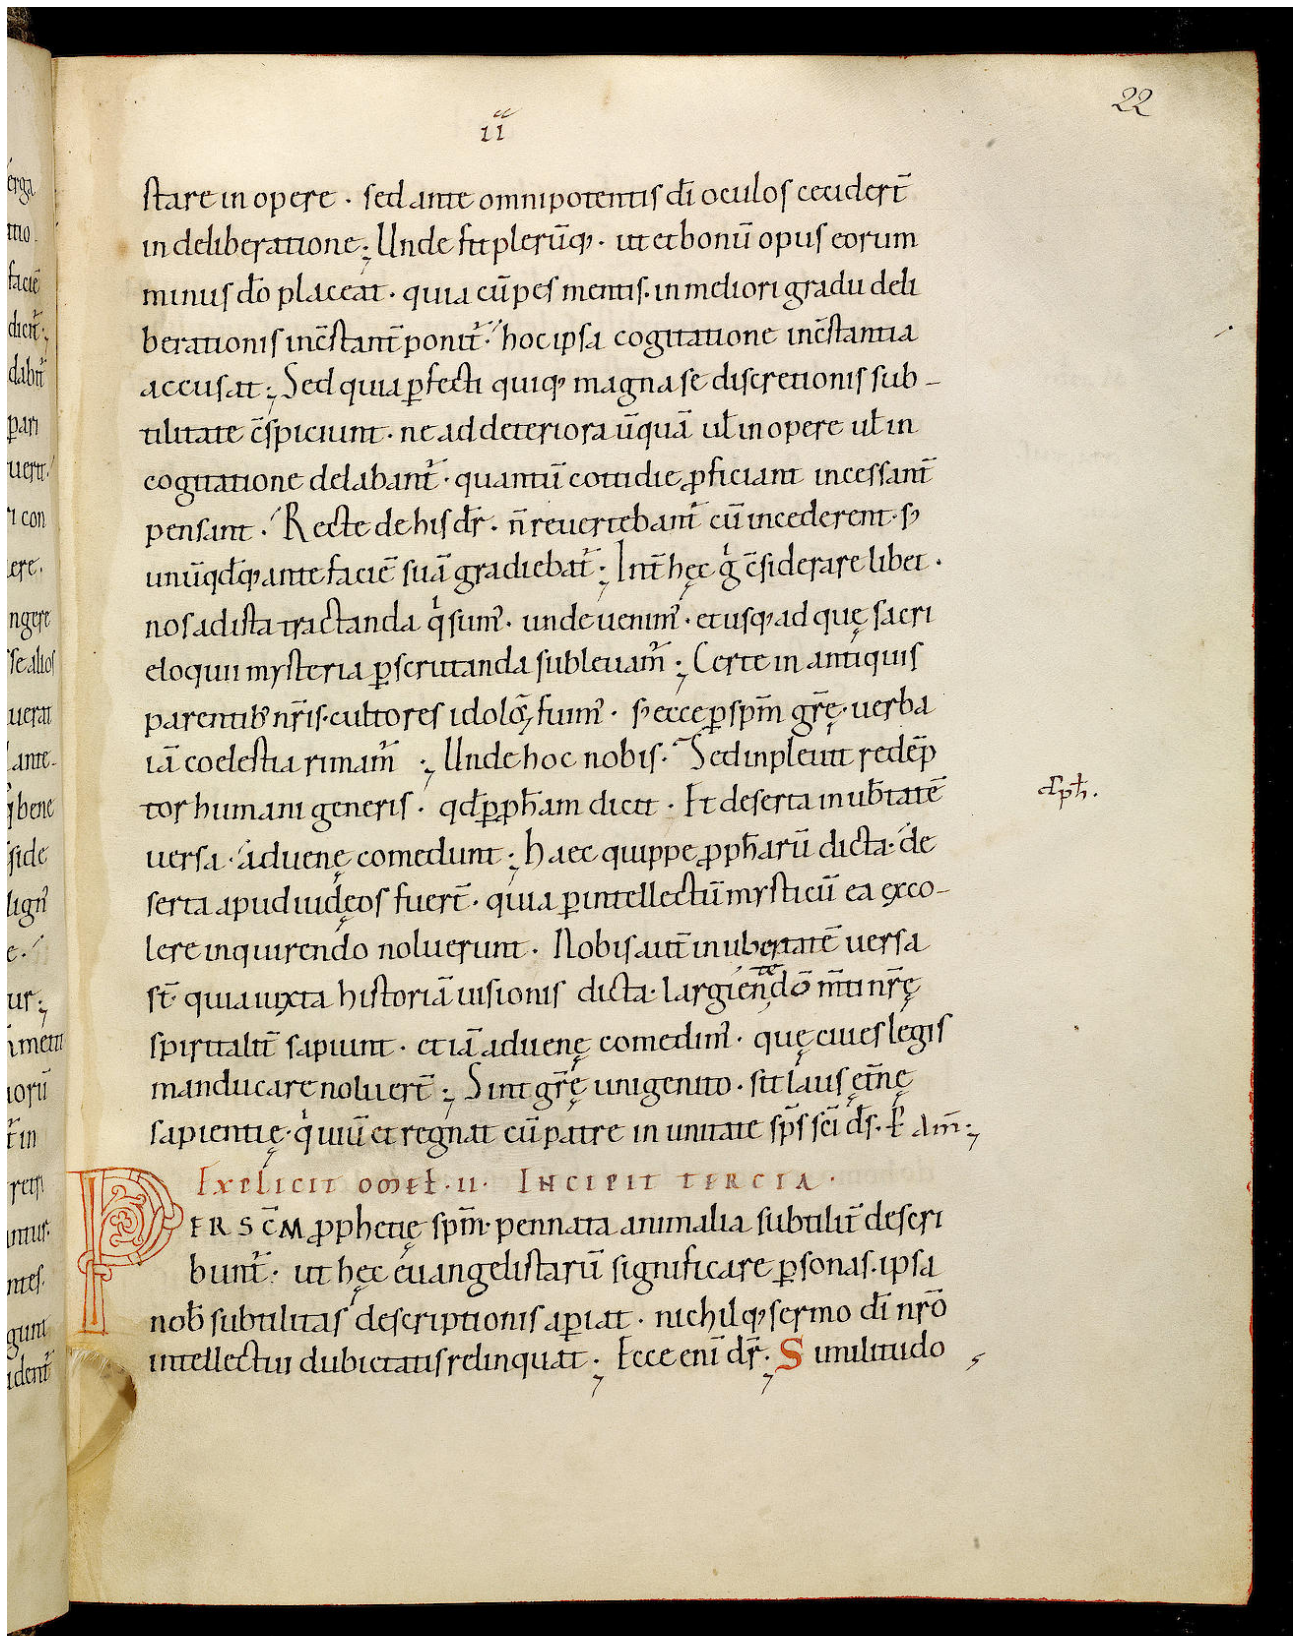 22
ii
stare in opere · sed ante omnipotentis dī oculos cecider̄t
in deliberatione; Unde fit plerūq; · ut et bonū opus eorum
minus dō placeat · quia cū pes mentis · in meliori gradu deli
berationis incstant ponit᷑ · hoc ipsa cogitatione incstantia
accusat; Sed quia ꝑfecti quiq; magna se discretionis sub-
tilitate c̄spiciunt · ne ad deteriora ūquā ul̄ in opere ul̄ in
cogitatione delabant᷑ · quantū cottidie ꝓficiant incessant̄
pensant · Recte de his dr̄ · n̄ reuertebant᷑ cū incederent · s;
unūqd̄q; ante faciē suā gradiebat᷑; Int̄ hęc g̊ c̄siderare libet ·
nos ad ista tractanda q̍ sum᷒ · unde uenim᷒ · et usq; ad quę sacri
eloquii mysteria ꝑscrutanda subleuam᷑; Certe in antiquis
parentib; nr̄is · cultores idoloꝝ fuim᷒ · s; ecce ꝑ spm̄ gr̄ę · uerba
iā coelestia rimam᷑; Unde hoc nobis · Sed inpleuit redēp
tor humani generis · qd̄ ꝑ ꝓph̄am dicit · Et deserta in ub̄tatē
uersa · aduenę comedunt; Haec quippe ꝓph̄arū dicta · de
serta apud iudęos fuer̄t · quia ꝑ intellectū mysticū ea exco-
lere inquirendo noluerunt · Nobis aut̄ in ubertatē uersa
st̄ · quia iuxta historiā uisionis dicta · largiendō m̄ti nr̄ę
te
spiritalit̄ sapiunt · et iā aduenę comedim᷒ · quę ciues legis
manducare noluer̄t; Sint gr̄ę unigenito · sit laus ęt̄nę
sapientię · q̍ uiū et regnat cū patre in unitate sp̄s sc̄i d̄s · ꝑ Am̄;
Explicit omel · ii · Incipit tercia ·
PER SCM̄ ꝓphetię spm̄ · pennata animalia subtilit̄ descri
bunt᷑ · ut hęc euangelistarū significare ꝑsonas · ipsa
nob̄ subtilitas descriptionis aꝑiat · nichilq; sermo dī nr̄o
intellectui dubietatis relinquat; Ecce enī dr̄; Similitudo